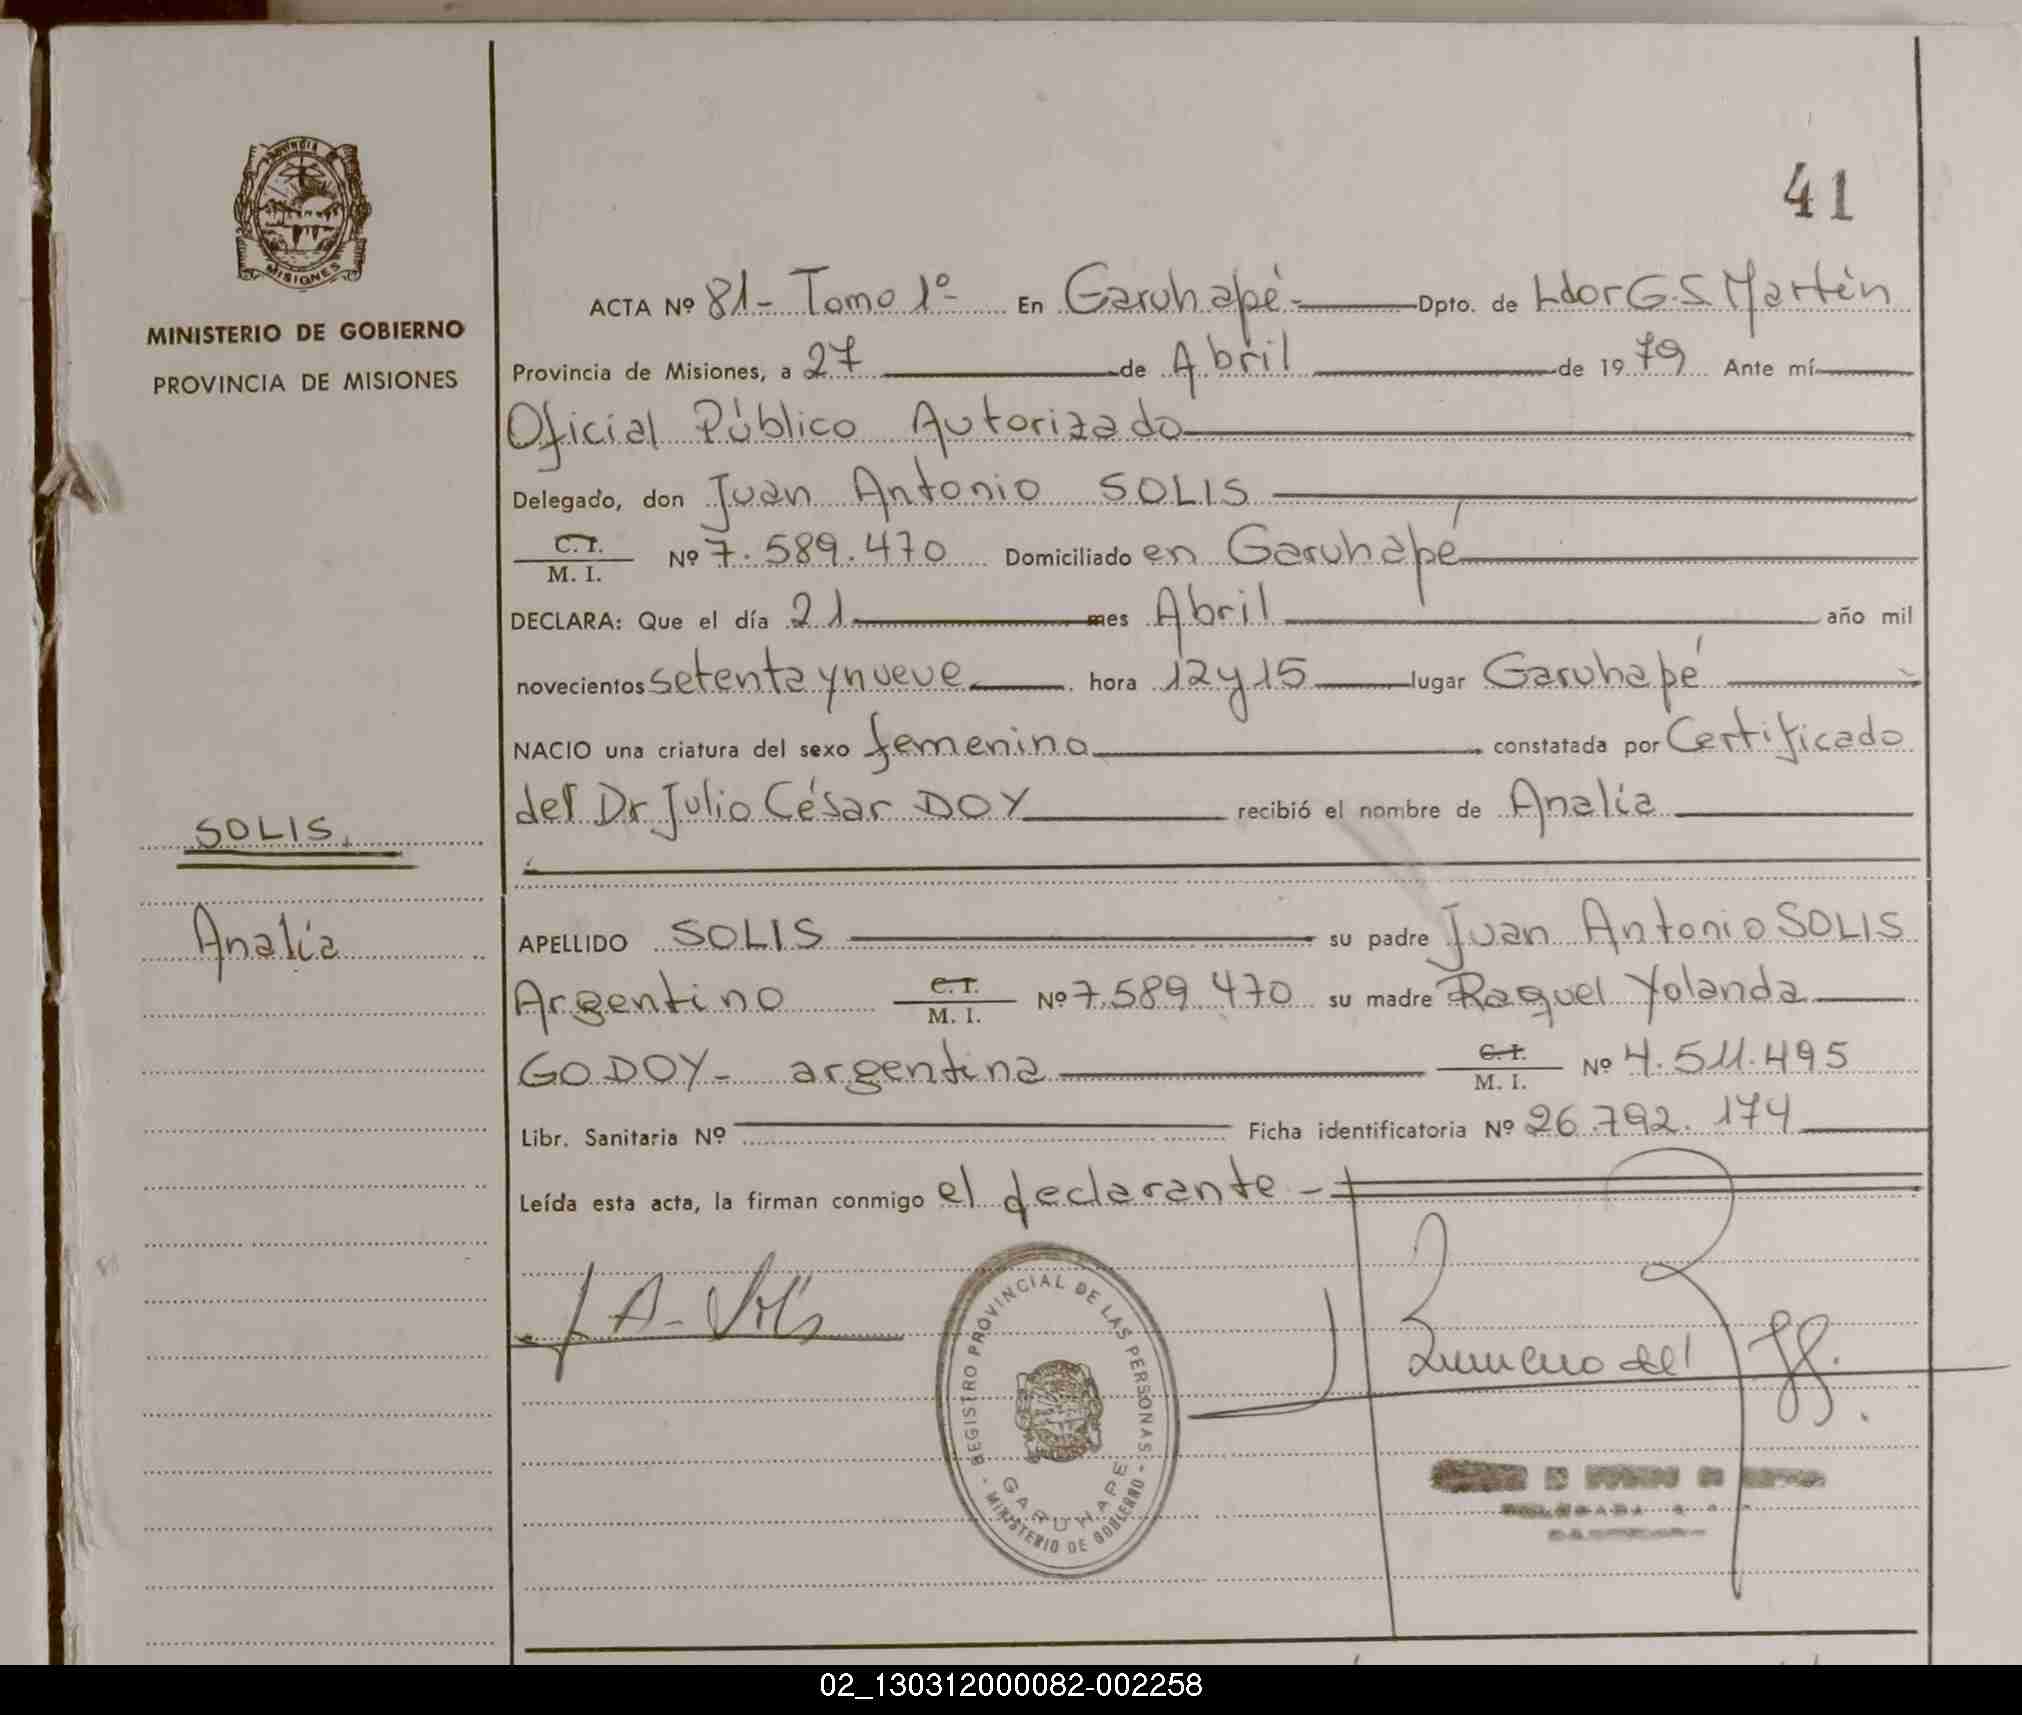 PROVINCIA DE
MISIONES
MINISTERIO DE GOBIERNO
PROVINCIA DE MISIONES
41
ACTA Nº 81- Tomo 1º- En Garuhapé- Dpto. de Ldor G. S Martín
Provincia de Misiones, a 27 de Abril de 1979 Ante mí
Oficial Público Autorizado
Delegado, don Juan Antonio SOLIS
C. I. / M. I. Nº 7.589.470 Domiciliado en Garuhapé
DECLARA: Que el día 21 mes Abril año mil
novecientos setenta y nueve hora 12 y 15 lugar Garuhapé
NACIO una criatura del sexo femenino constatada por Certificado
del Dr Julio César DOY recibió el nombre de Analía
SOLIS
Analía
APELLIDO SOLIS su padre Juan Antonio SOLIS
Argentino C. I. / M. I. Nº 7.589.470 su madre Raquel Yolanda
GODOY- argentina C. I. / M. I. Nº 4.511.495
Libr. Sanitaria Nº Ficha identificatoria Nº 26.792.174
Leída esta acta, la firman conmigo el declarante -
J A- Solís
REGISTRO PROVINCIAL DE LAS PERSONAS
GARUHAPE
- MINISTERIO DE GOBIERNO -
02_130312000082-002258